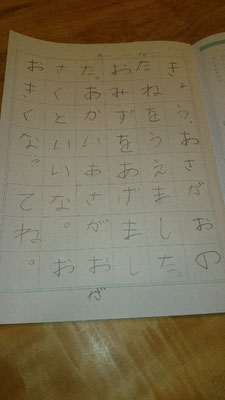 きょう、あさがおの
たねをうえました。
おみずをあげまし
た。あかいあさがおが
さくといいな。お
おきくな。てね。